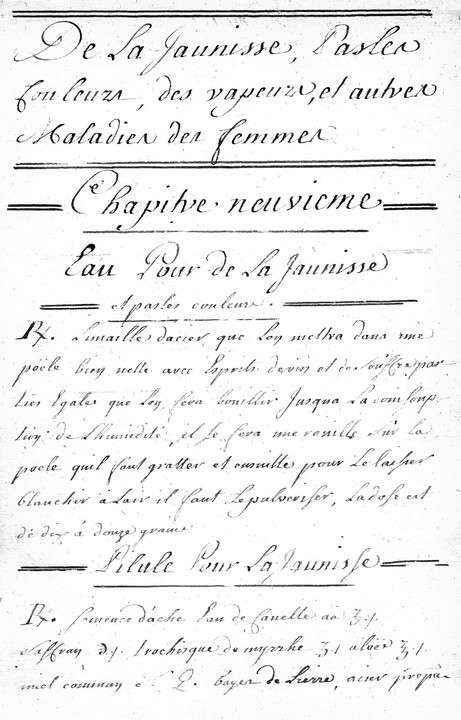 De La Jaunisse, Pasles
Couleurs, des vapeurs, et autres
Maladies des femmes
Chapitre neuvieme
Eau Pour de La Jaunisse
et pasles couleurs.
℞. Limaille dacier que lon mettra dans une
poële bien nette avec Esprits de vin et de Souffre par-
ties Egales que lon fera bouillir Jusqua La consomp-
tion de Lhumidité, il se fera une rouille sur La
poele quil faut gratter et ensuitte pour Le laisser
blanchir à Lair il faut Le pulveriser, La dose est
de dix à douze grains
Pilule Pour La Jaunisse
℞. semence dache Eau de Canelle aa ʒ.j.
Saffran ʒj. trochisque de myrrhe ʒ.j aloës ʒ.j.
miel commun Q. bayes de Lierre, acier prépa-